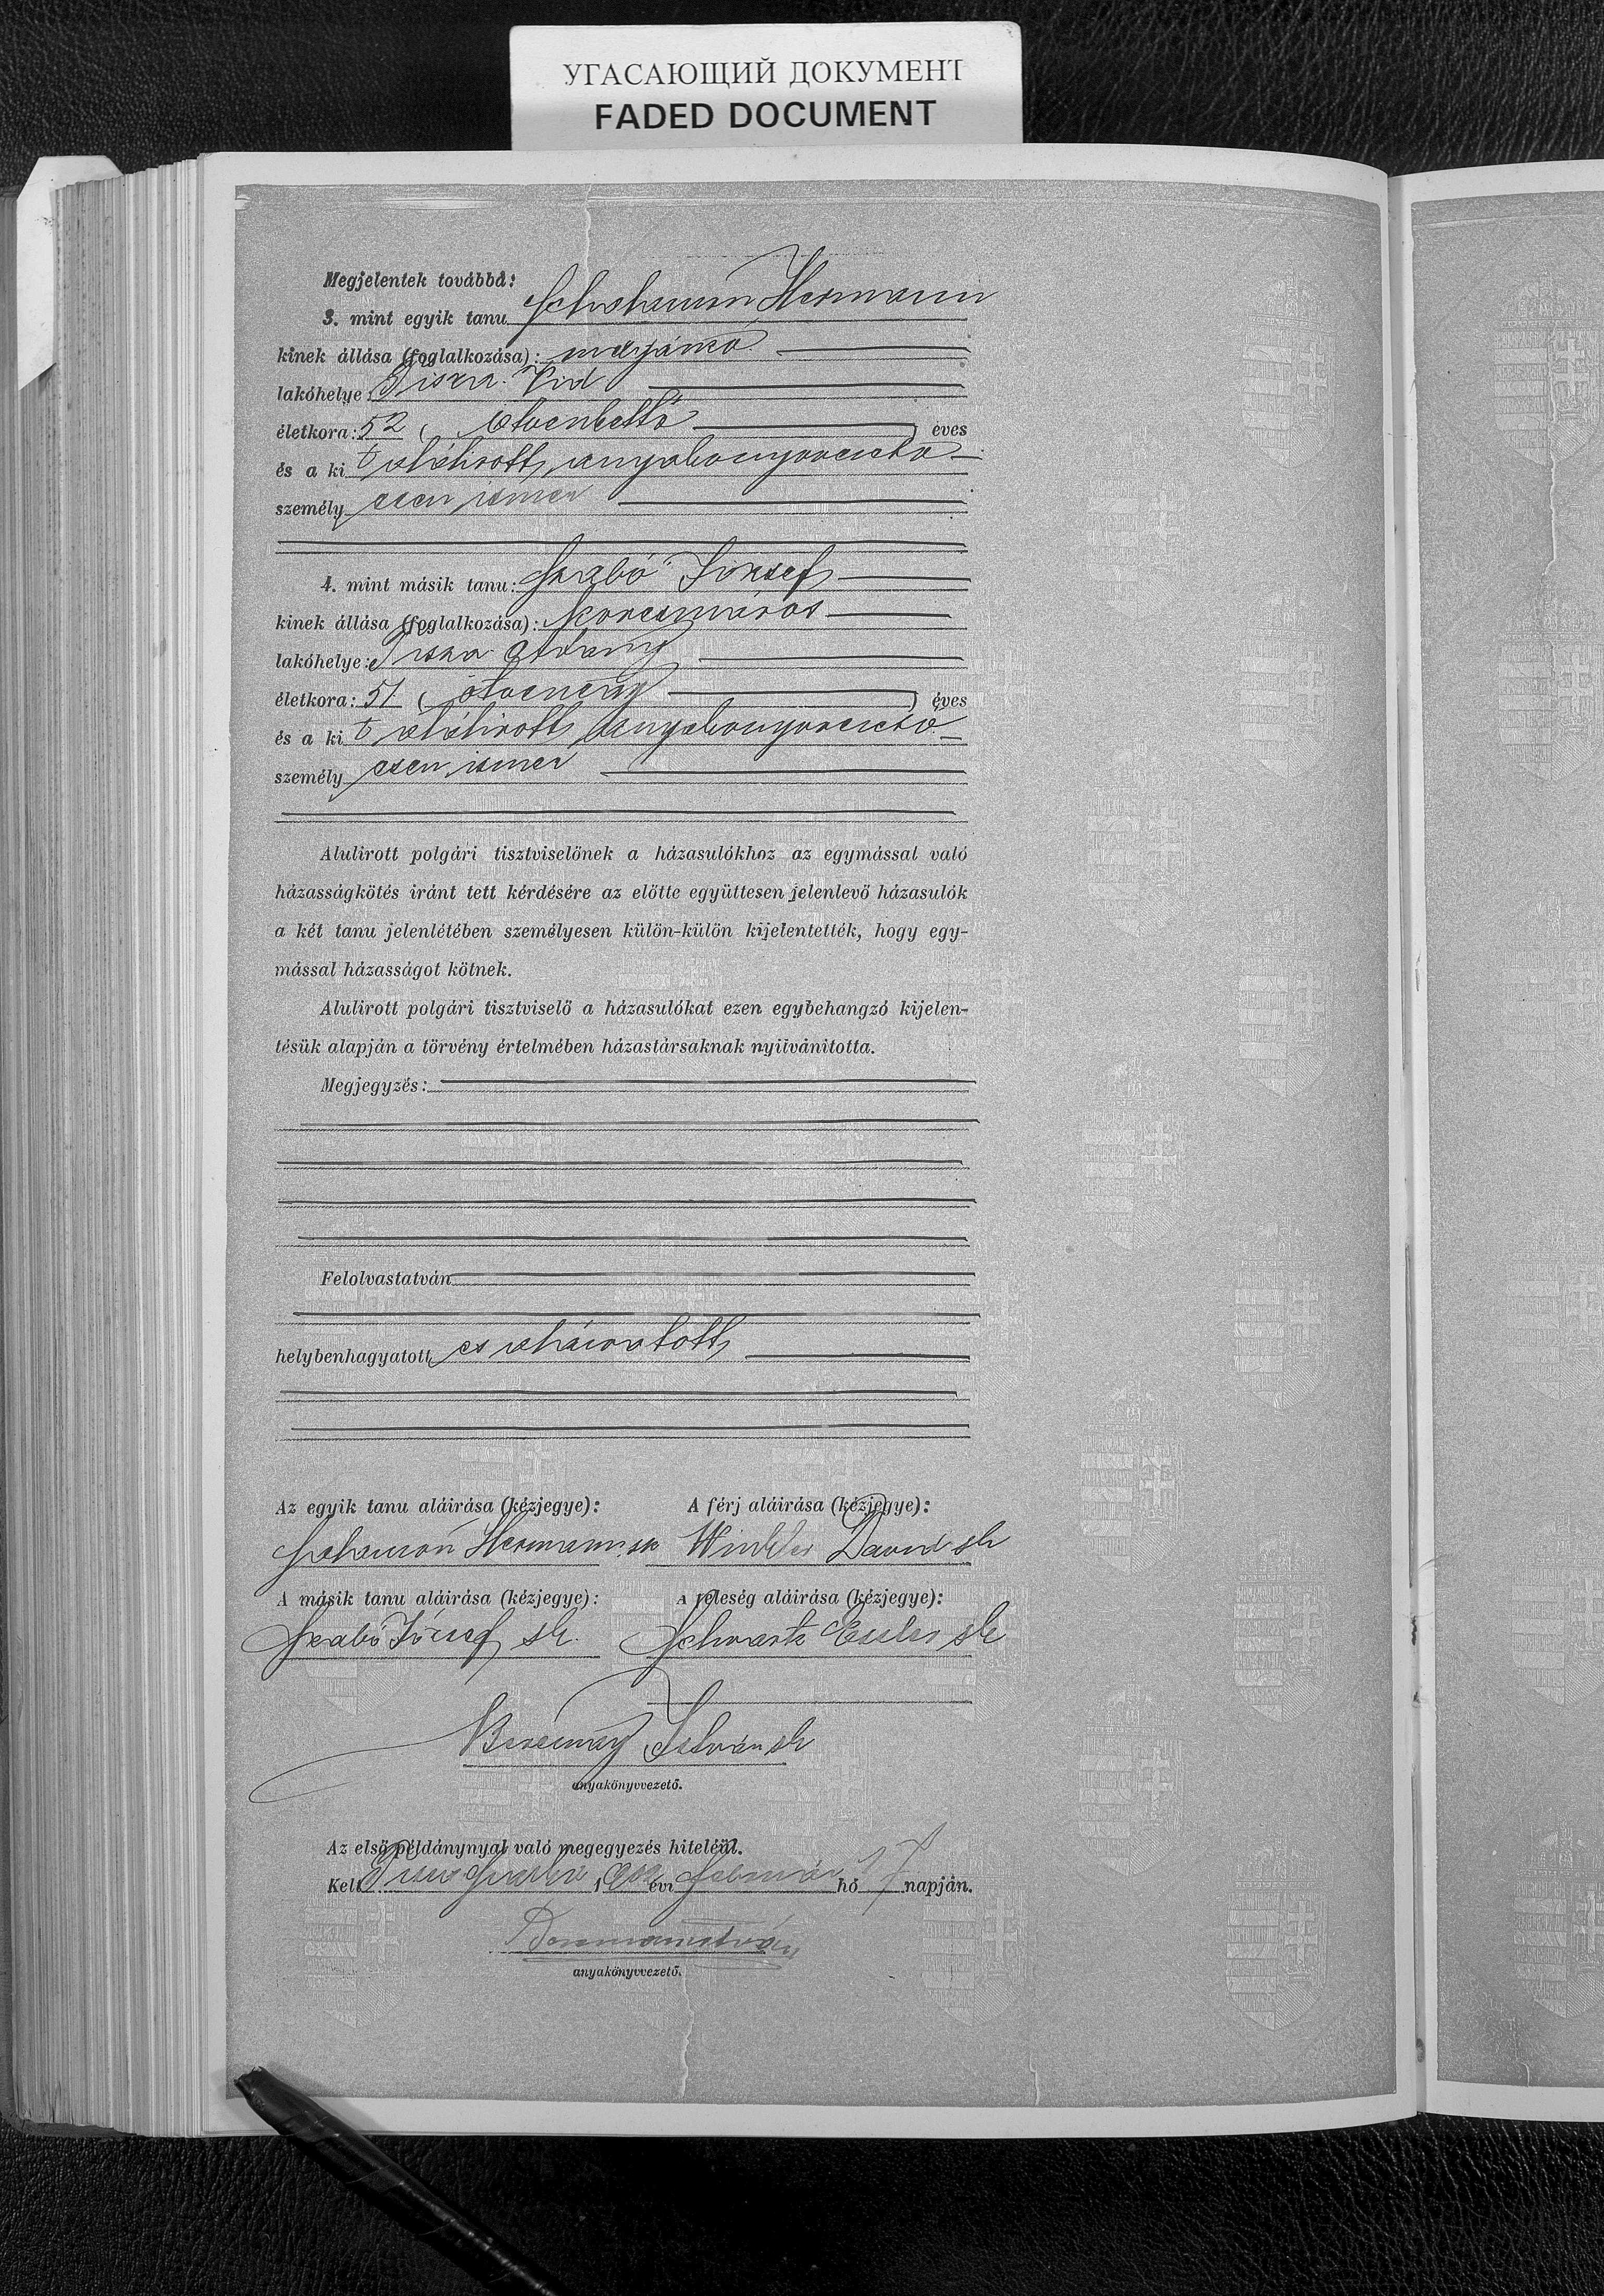 УГАСАЮЩИЙ ДОКУМЕНТ
FADED DOCUMENT
Megjelentek továbbá:
3. mint egyik tanu Hermann
kinek állása (foglalkozása):
lakóhelye: Tisza
életkora: 52 ( ötvenkettő ) éves
és a ki alólirott anyakönyvvezető
személy esen ismer
4. mint másik tanu: Szabó József
kinek állása (foglalkozása): korcsmáros
lakóhelye: Tisza
életkora: 51 ( ötvenegy ) éves
és a ki alólirott anyakönyvvezető
személy esen ismer
Alulirott polgári tisztviselőnek a házasulókhoz az egymással való
házasságkötés iránt tett kérdésére az előtte együttesen jelenlevő házasulók
a két tanu jelenlétében személyesen külön-külön kijelentették, hogy egy-
mással házasságot kötnek.
Alulirott polgári tisztviselő a házasulókat ezen egybehangzó kijelen-
tésük alapján a törvény értelmében házastársaknak nyilvánitotta.
Megjegyzés:
Felolvastatván
helybenhagyatott, és aláiratott
Az egyik tanu aláirása (kézjegye): A férj aláirása (kézjegye):
Hermann sk Winkler David sk
A másik tanu aláirása (kézjegye): A feleség aláirása (kézjegye):
Szabó József sk. Schwartz Eszter sk
István sk
anyakönyvvezető.
Az első példánynyal való megegyezés hiteléül.
Kelt 1 évi február hó 17 napján.
anyakönyvvezető.